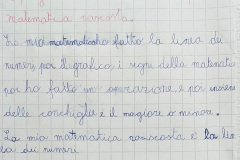 matematica nascosta
La mia matematica ho fatto la linea dei
numeri, poi il grafico, i segni della matemati
poi ho fatto un operazione e poi
delle conchiglie e il maggiore o minore.
La mia matematica nascosta è la lin
ea dei numeri